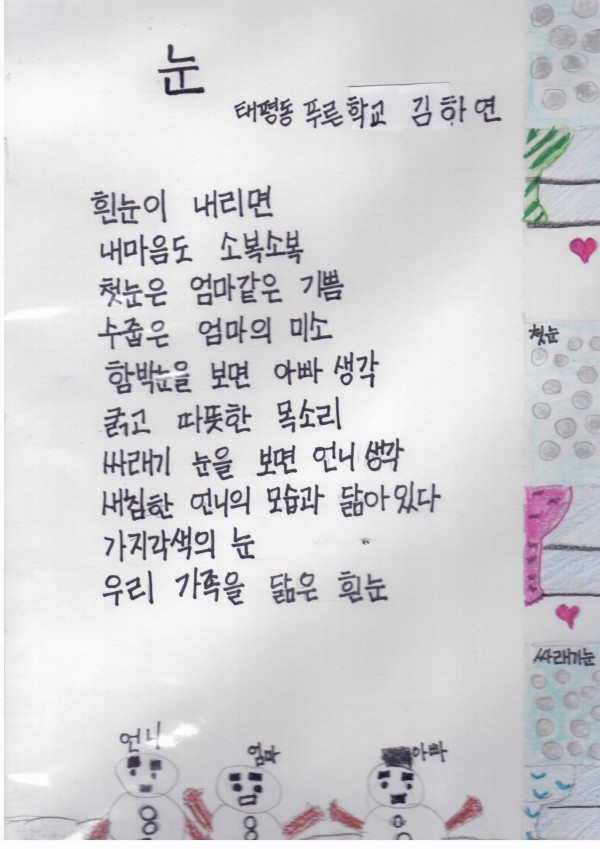 눈
태평동 푸른학교 김하연
흰눈이 내리면
내마음도 소복소복
첫눈은 엄마같은 기쁨
수줍은 엄마의 미소
함박눈을 보면 아빠 생각
굵고 따뜻한 목소리
싸래기 눈을 보면 언니 생각
새침한 언니의 모습과 닮아있다
가지각색의 눈
우리 가족을 닮은 흰눈
첫눈
싸래기눈
언니
엄마
아빠